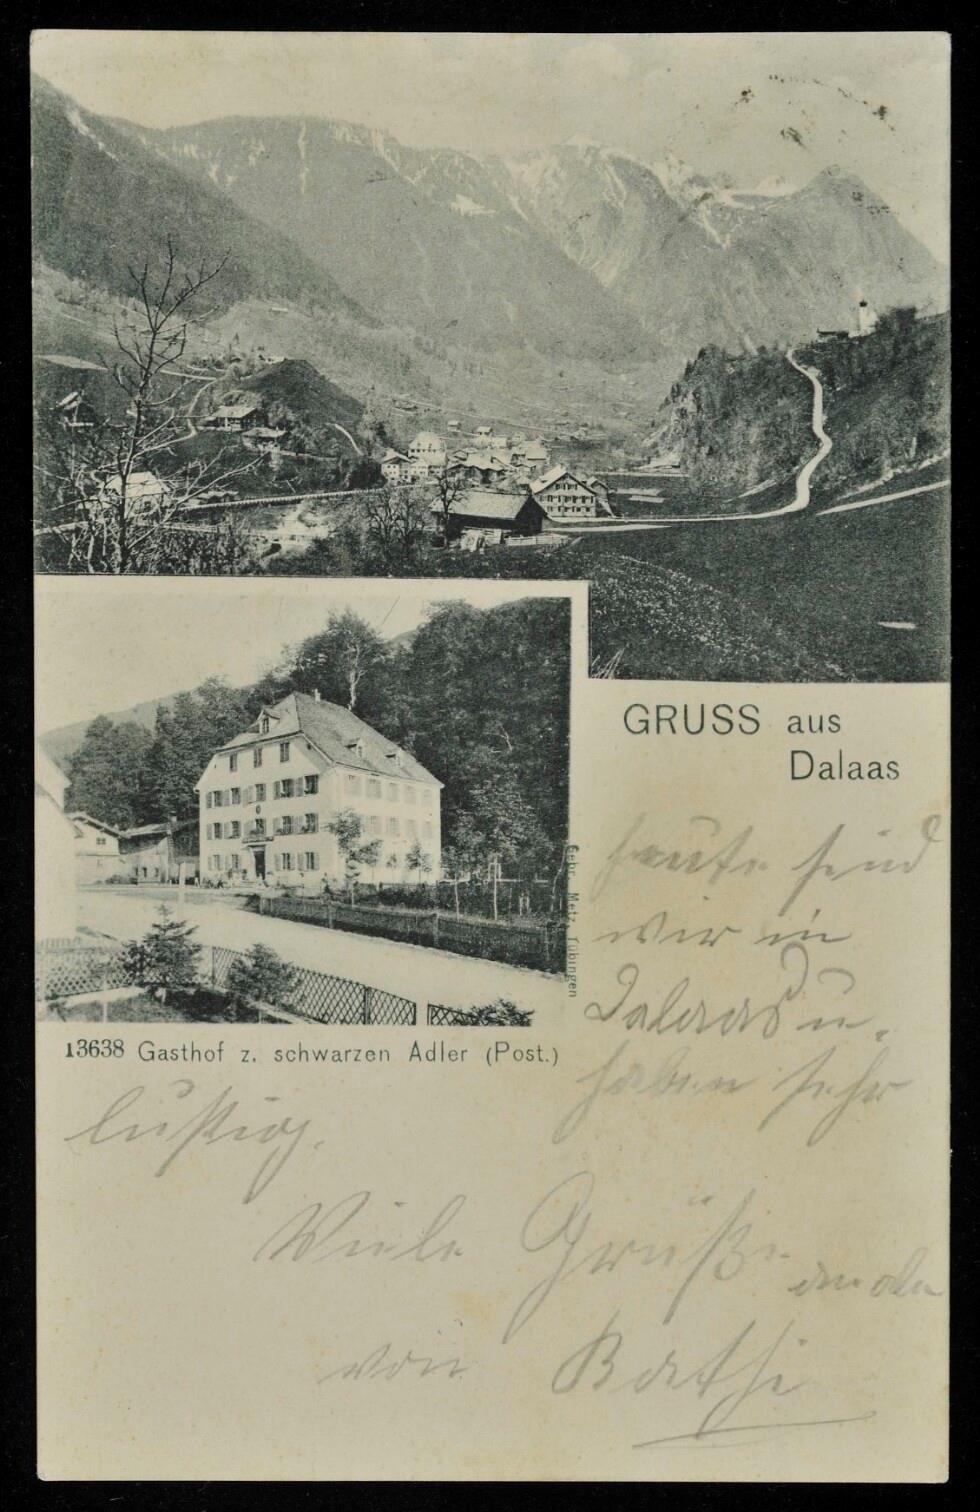 GRUSS aus
Dalaas
Gebr. Metz, Tübingen
13638 Gasthof z. schwarzen Adler (Post.)
heute sind
wir in
Dalaas u.
haben sehr
lustig.
Viele Grüße
an alle
von Bathi